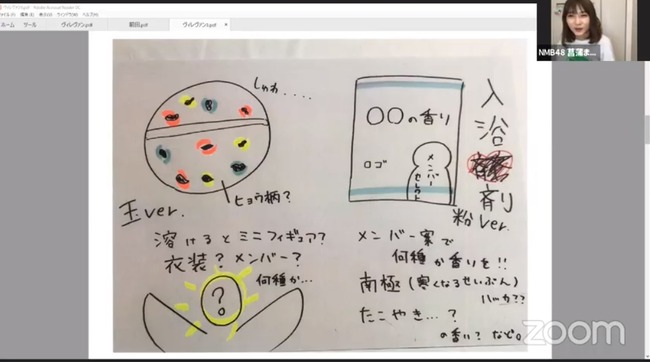 ヴィレヴァン.pdf
ヴィレヴァン1.pdf
ホーム
ツール
NMB48 菖蒲ま...
しゅわ....
ヒョウ柄？
玉ver.
溶けるとミニフィギュア？
衣装？メンバー？
何種か...
？
〇〇の香り
ロゴ
メンバー
セレクト
入浴剤
粉ver.
メンバー案で
何種か香りを!!
南極(寒くなるせいぶん)
ハッカ??
たこやき...？
の香い？など。
zoom